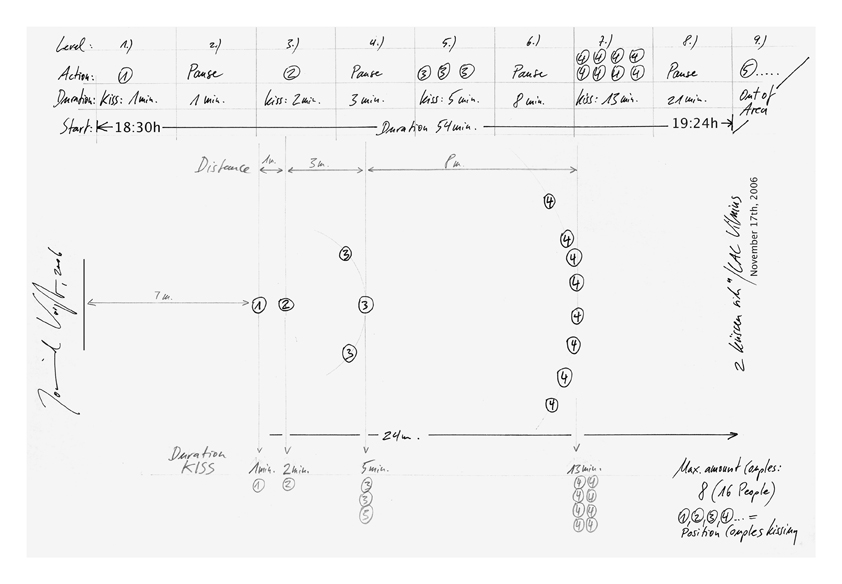 Level: 1.) 2.) 3.) 4.) 5.) 6.) 7.) 8.) 9.)
4 4 4 4
Action: 1 Pause 2 Pause 3 3 3 Pause 4 4 4 4 Pause 5.....
Duration: Kiss: 1min. 1 min. Kiss: 2min. 3 min. Kiss: 5 min. 8 min. Kiss: 13 min. 21 min. Out of
Area
Start: 18:30h Duration 54min. 19:24h
Distance 1m. 3 m. 8 m.
4
4
3 4
4
7 m. 1 2 3 4
4
3
4
4
24m.
Duration
KISS 1min. 2min. 5min. 13min.
1 2 3 4 4
3 4 4
5 4 4
4 4
Max. amount Couples:
8 (16 People)
1, 2, 3, 4... =
Position Couples kissing
2 küssen sich"/CAC Vilnius
November 17th, 2006
2006